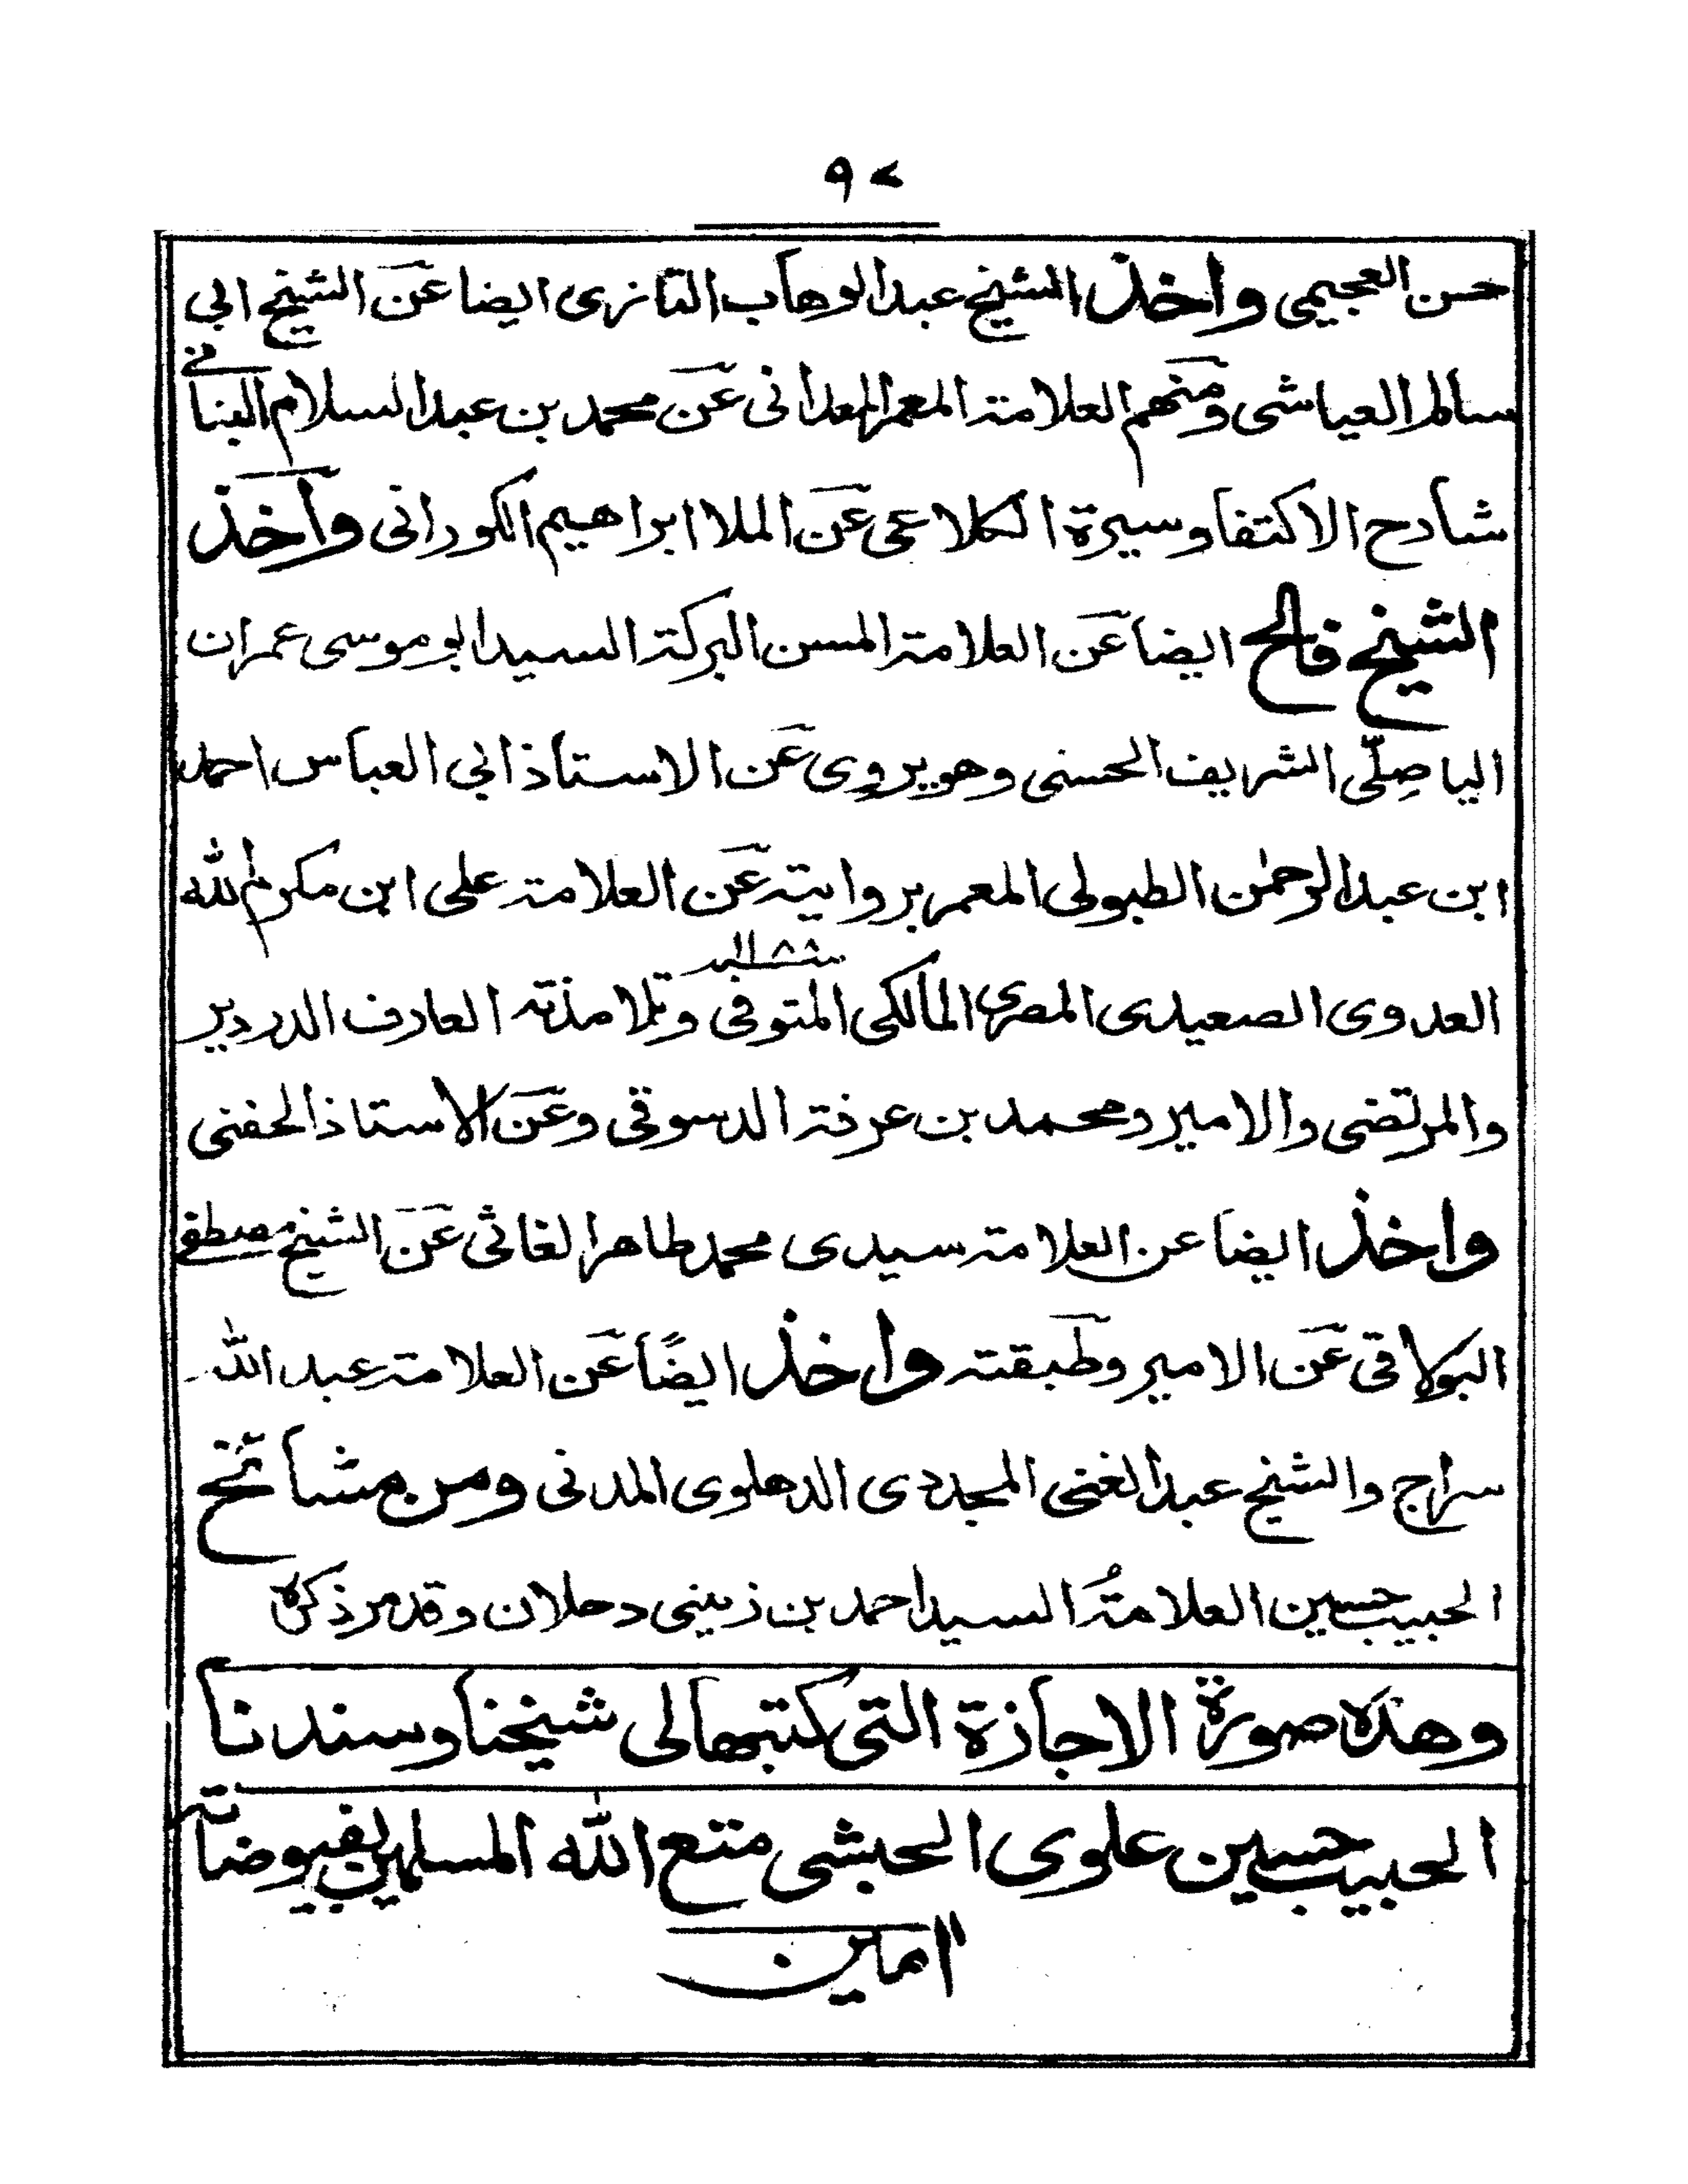 ٩٧
حسن العجيمى واخذ الشيخ عبد الوهاب التازى ايضا عن الشيخ ابى
سالم العياشى ومنهم العلامة المعمر المعدانى عن محمد بن عبد السلام البنانى
شارح الاكتفا وسيرة الكلاعى عن الملا ابراهيم الكورانى واخذ
الشيخ فالح ايضا عن العلامة المسن البركة السيد ابو موسى عمران
الياصِلّى الشريف الحسنى وهو يروى عن الاستاذ ابى العباس احمد
ابن عبد الرحمن الطبولى المعمر بروايته عن العلامة على ابن مكرم الله
العدوى الصعيدى المصرى المالكى المتوفى وتلامذته العارف الدردير
والمرتضى والامير ومحمد بن عرفة الدسوقى وعن الاستاذ الحفنى
واخذ ايضا عن العلامة سيدى محمد طاهر الغاتى عن الشيخ مصطفى
البولاقى عن الامير وطبقته واخذ ايضًا عن العلامة عبد الله
سراج والشيخ عبد الغنى المجددى الدهلوى المدنى ومن مشائخ
الحبيب حسين العلامةُ السيد احمد بن زينى دحلان وقد مر ذكره
وهذه صورة الاجازة التى كتبها لى شيخنا وسندنا
الحبيب حسين علوى الحبشى متع الله المسلمين بفيوضاته
امين